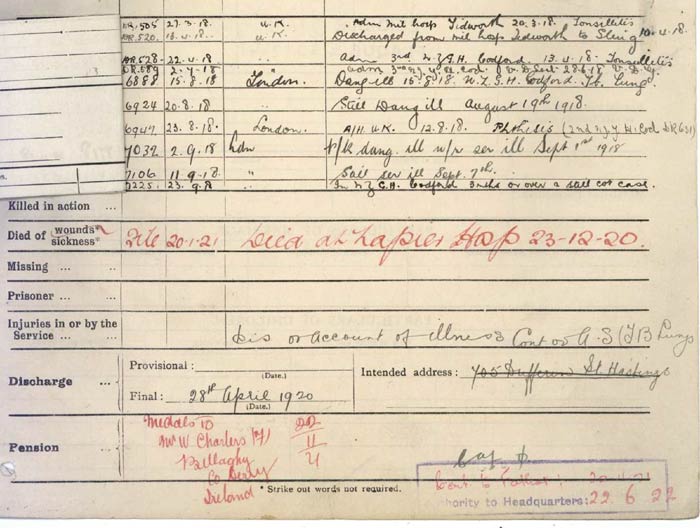 HR.505 27.3.18 U.K. Adm Mil hosp Tidworth 20.3.18. Tonsillitis
HR.520. 13.4.18 U.K. Discharged from mil hosp Tidworth to Sling 10.4.18
HR.528 22.4.18 " Adm 3rd N.Z.G.H. Codford. 13.4.18. Tonsillitis
2.7.18
6888 15.8.18 London. Dang ill 15.8.18 N.Z.G.H. Codford. Tb. Lung.
6924 20.8.18 " Still Dang ill August 19th 1918.
6947 23.8.18. London. A/H. U.K. 12.8.18. Phthisis
7032 2.9.18 Ldn p/R dang. ill n/r ser ill Sept 1st 1918
7106 11.9.18. " Still ser ill Sept. 7th.
7225. 23.9.8 " In N.Z.G.H. Codford 3mths or over a still cot case.
Killed in action ...
Died of wounds* sickness* 20.1.21 Died at Napier Hosp 23-12-20.
Missing ... ...
Prisoner ... ...
Injuries in or by the Service ... ... Dis on account of illness Cont on A.S (T B Lungs
Discharge ... ...
Provisional :
(Date.)
Final : 28th April 1920
(Date.)
Intended address : 705 Dufferin St Hastings
Pension ...
Medals to 22
Mr W Charters (f) 11
Bellaghy 4
Co Derry
Ireland
* Strike out words not required.
Sent to Father:
Authority to Headquarters: 22.6.22